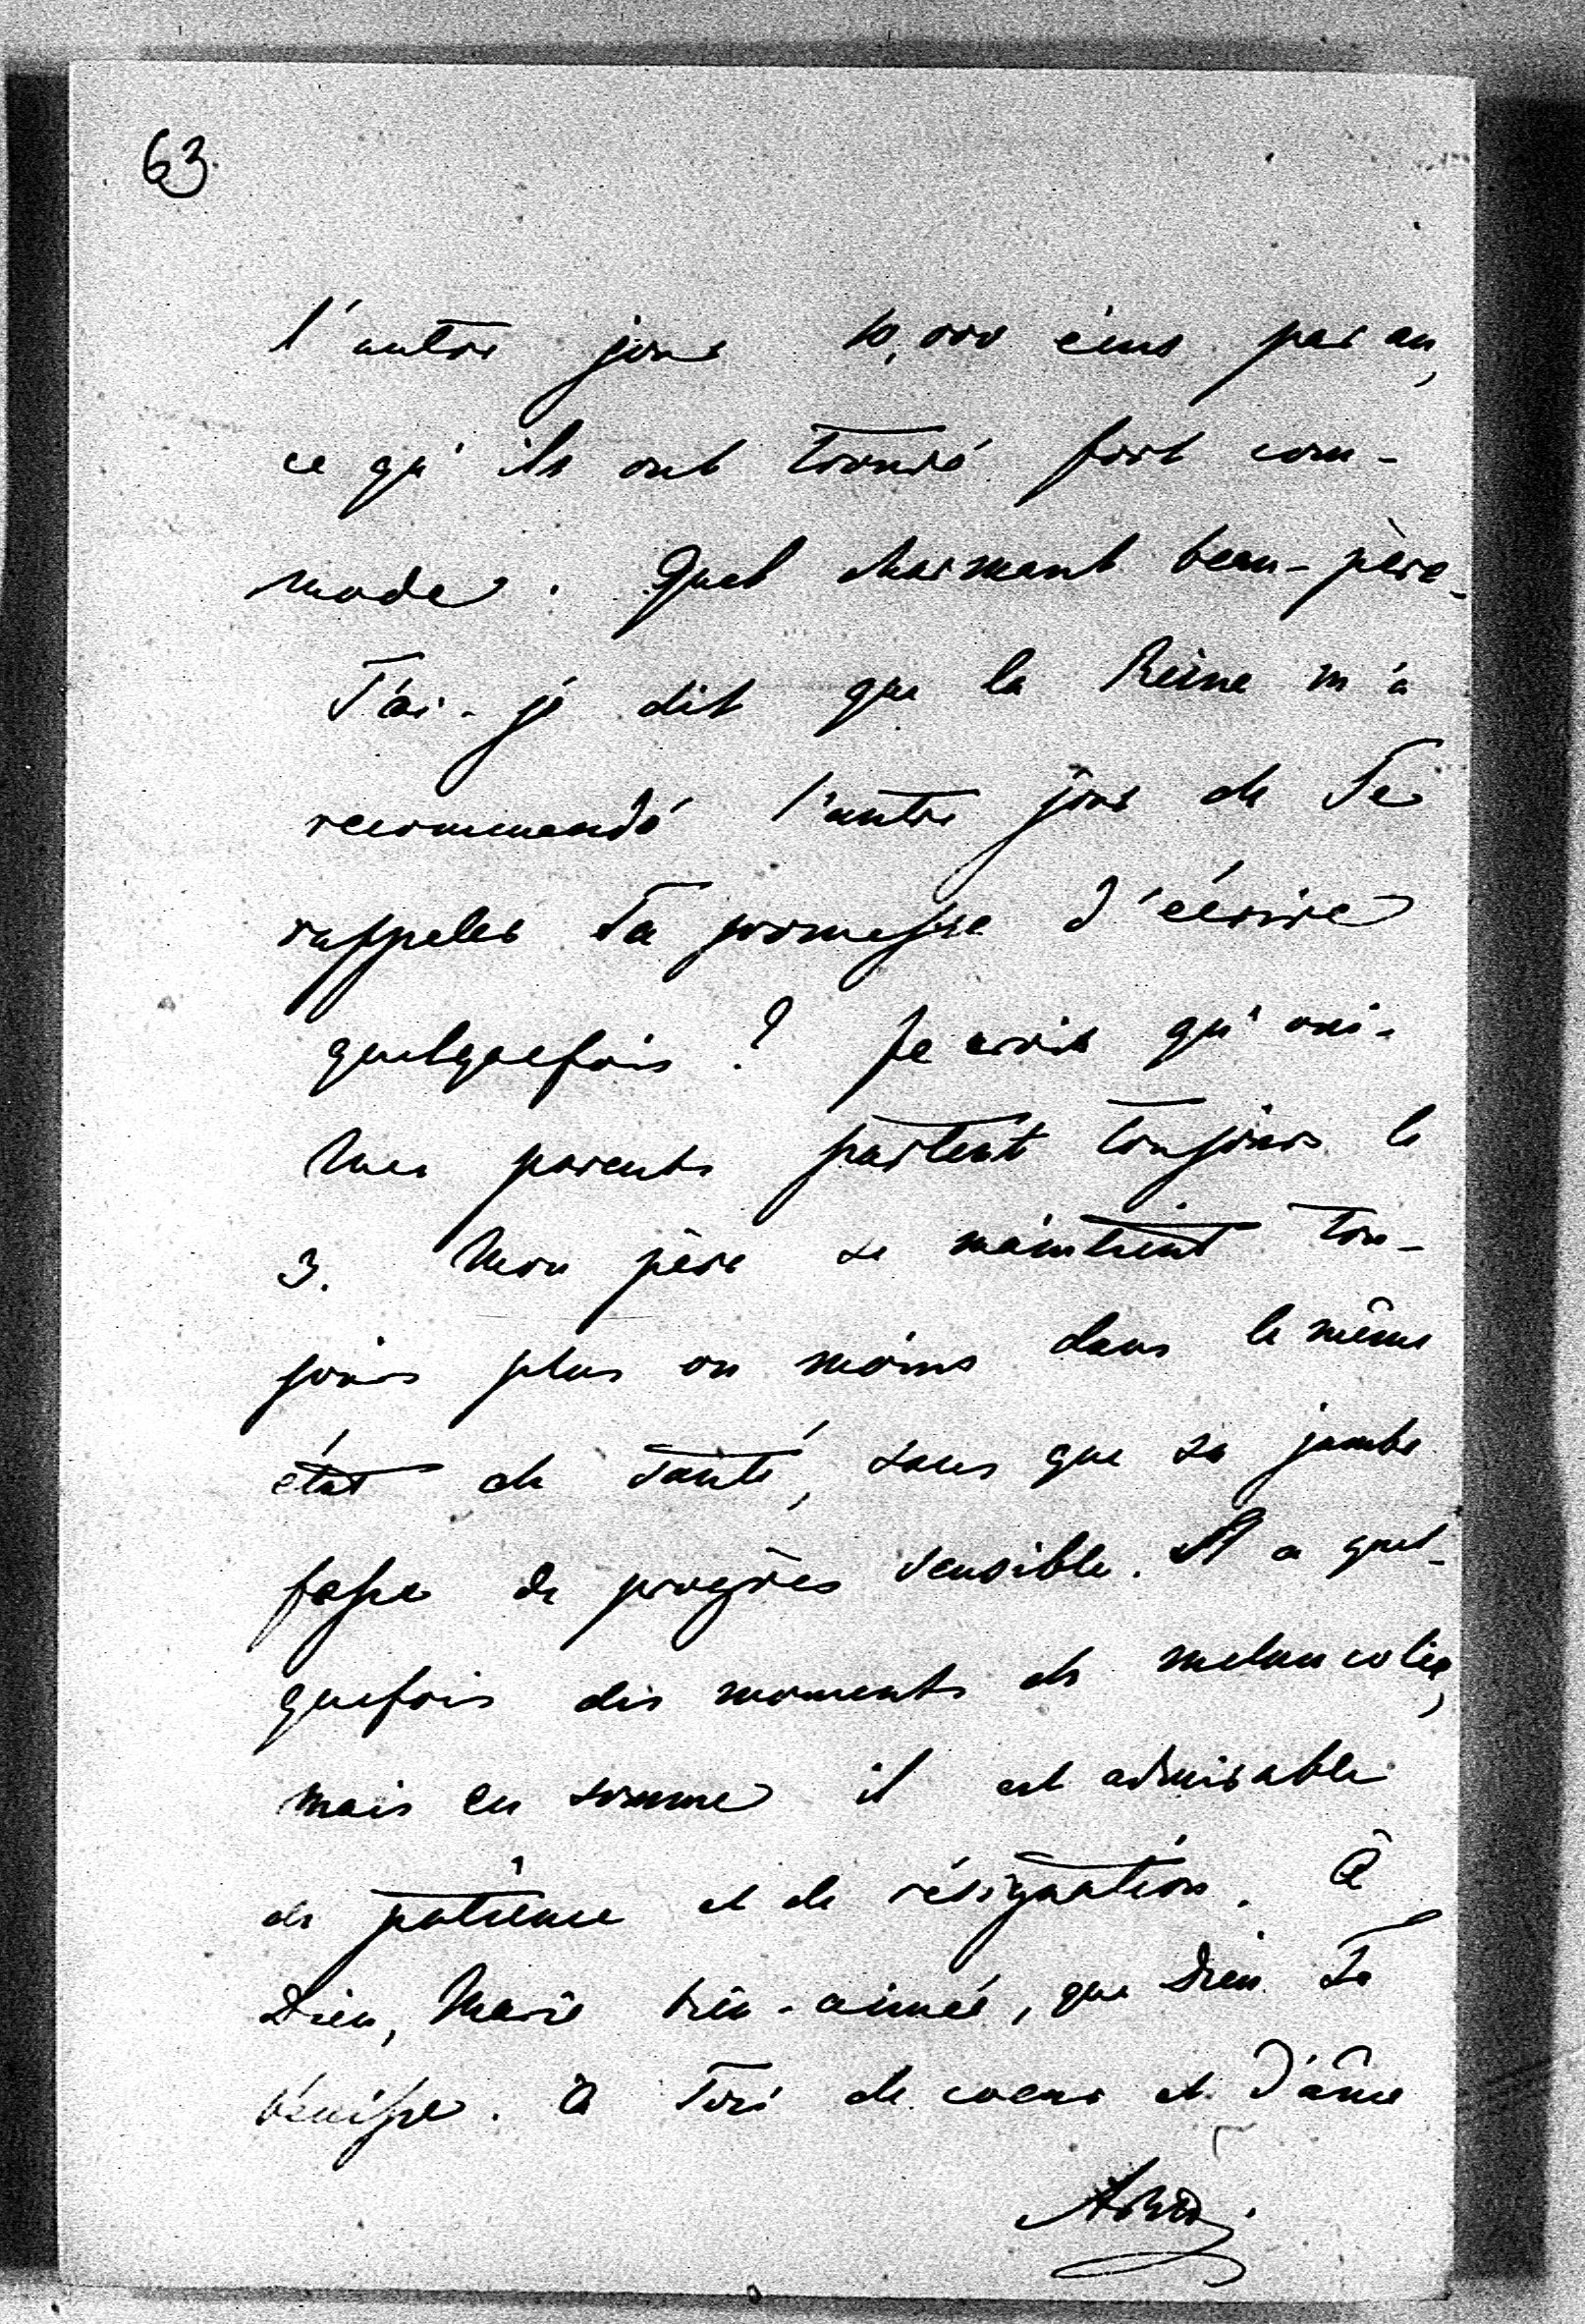 63.
l'autre jour 10,000 écus par an,
ce qu'ils ont trouvé fort com-
mode. Quel charmant beau-père.
T'ai-je dit que la Reine m'a
recommandé l'autre jour de Te
rappeler Ta promesse d'écrire
quelquefois? Je crois qu'oui.
Mes parents partent toujours le
3. Mon père se maintient tou-
jours plus ou moins dans le même
état de santé, sans que sa jambe
fasse de progrès sensible. Il a quel-
quefois des moments de melancolie,
mais en somme il est admirable
de patience et de résignation. À
Dieu, Marie bien-aimée, que Dieu Te
bénisse. À Toi de coeur et d'âme